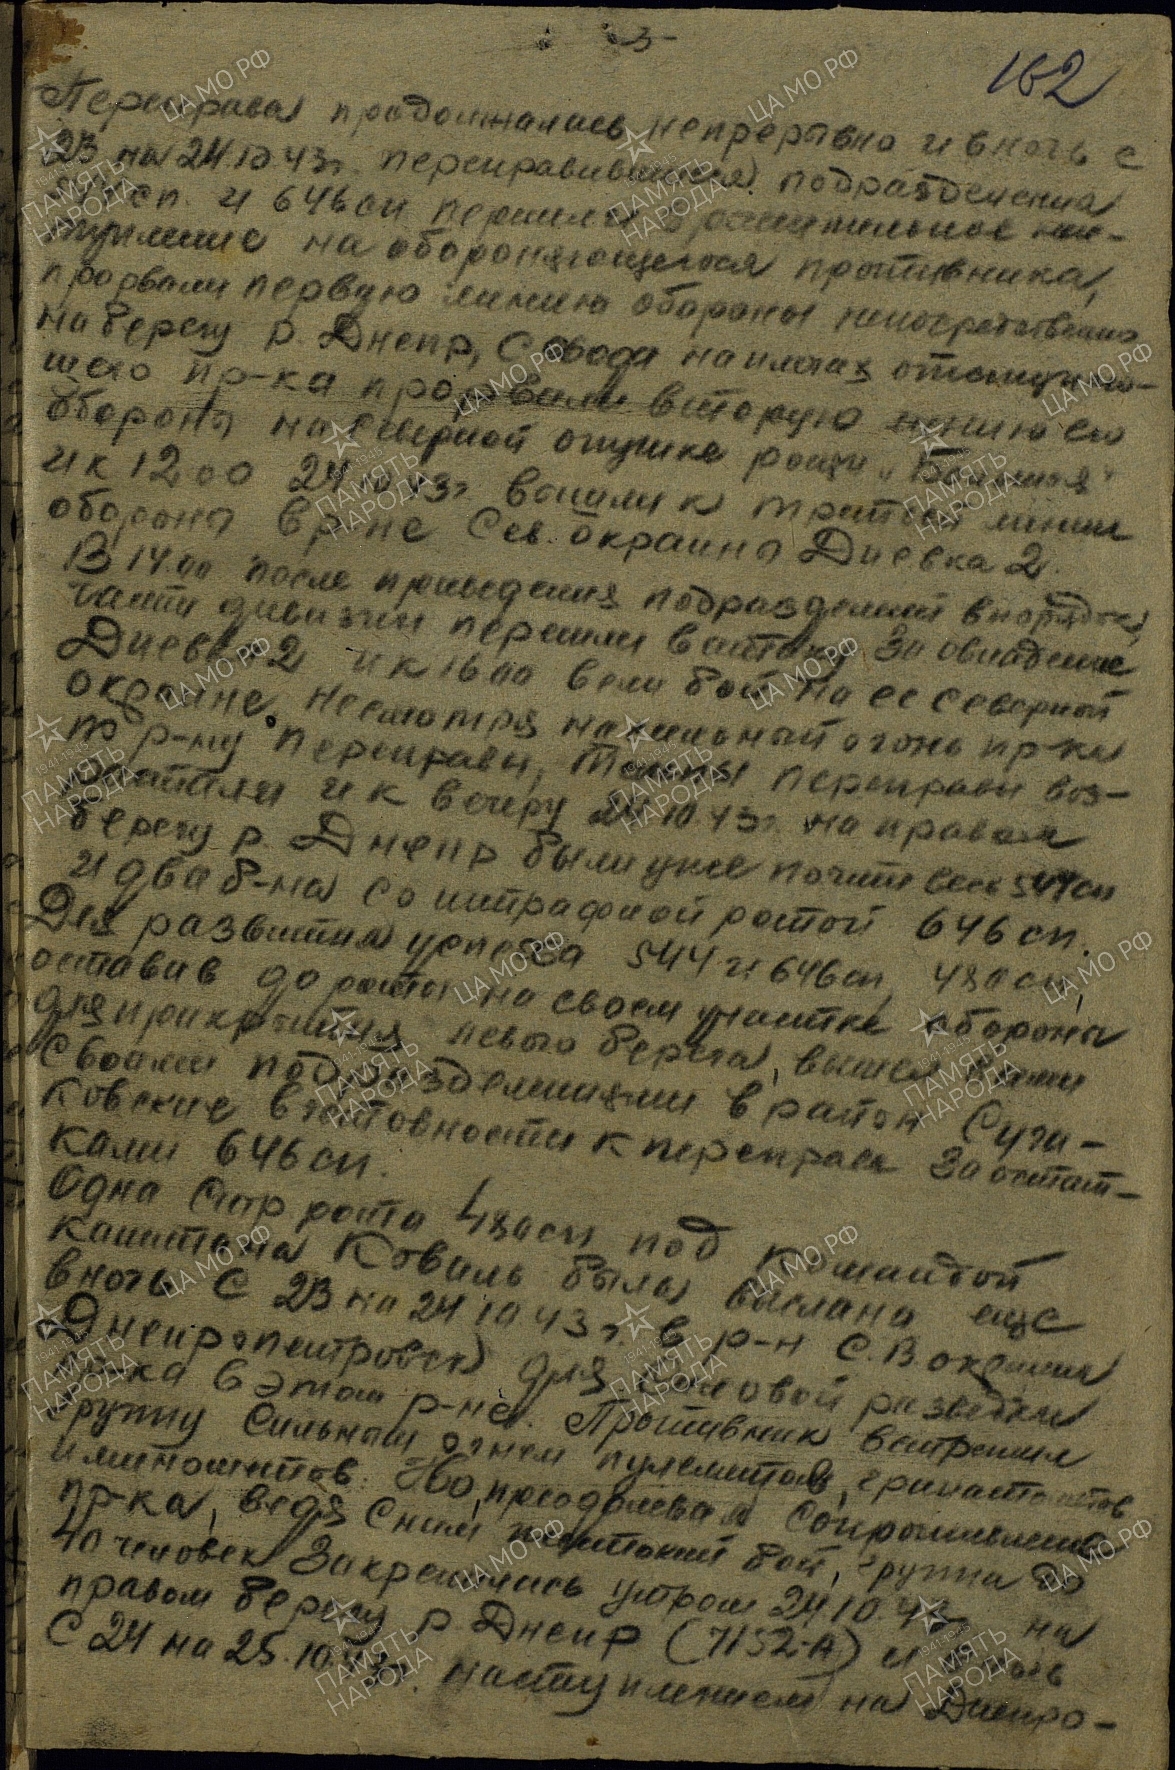 -3-
162
Переправа продолжалась непрерывно и в ночь с
23 на 24.10.43г. переправившиеся подразделения
544 сп. и 646 сп перешли в решительное нас-
тупление на обороняющегося противника,
прорвали первую линию обороны непосредственно
на берегу р. Днепр, с хода на плечах отступаю-
щего пр-ка прорвали вторую линию его
обороны на северной опушке рощи "Большая"
и к 12 00 24.10.43г. вышли к третьей линии
обороны в р-не Сев. окраины Диевка 2.
В 14.00 после приведения подразделений в порядок,
части дивизии перешли в атаку за овладение
Диевка 2 и к 16 00 вели бой на ее северной
окраине. Несмотря на сильный огонь пр-ка
по р-ну переправы, темпы переправы воз-
растали и к вечеру 24.10.43г. на правом
берегу р. Днепр были уже почти весь 544 сп
и два б-на со штрафной ротой 646 сп.
Для развития успеха 544 и 646 сп, 480 сп,
оставив до роты на своем участке обороны
для прикрытия левого берега, вышел
своими подразделениями в район Суга-
ковские в готовности к переправе за остат-
ками 646 сп.
Одна стр рота 480 сп под командой
капитана Коваль была выслана еще
в ночь с 23 на 24 10.43г. в р-н С.В. окраины
Днепропетровск для силовой разведки
пр-ка в этом р-не. Противник встретил
группу сильным огнем пулеметов,
и минометов. Но, преодолевая сопротивление
пр-ка, ведя с ним жестокий бой, группа до
40 человек закрепилась утром 24.10.43г. на
правом берегу р. Днепр (7152-А) и в ночь
с 24 на 25.10.43г. наступлением на Днепро-
ЦА МО РФ
ПАМЯТЬ
НАРОДА
1941-1945